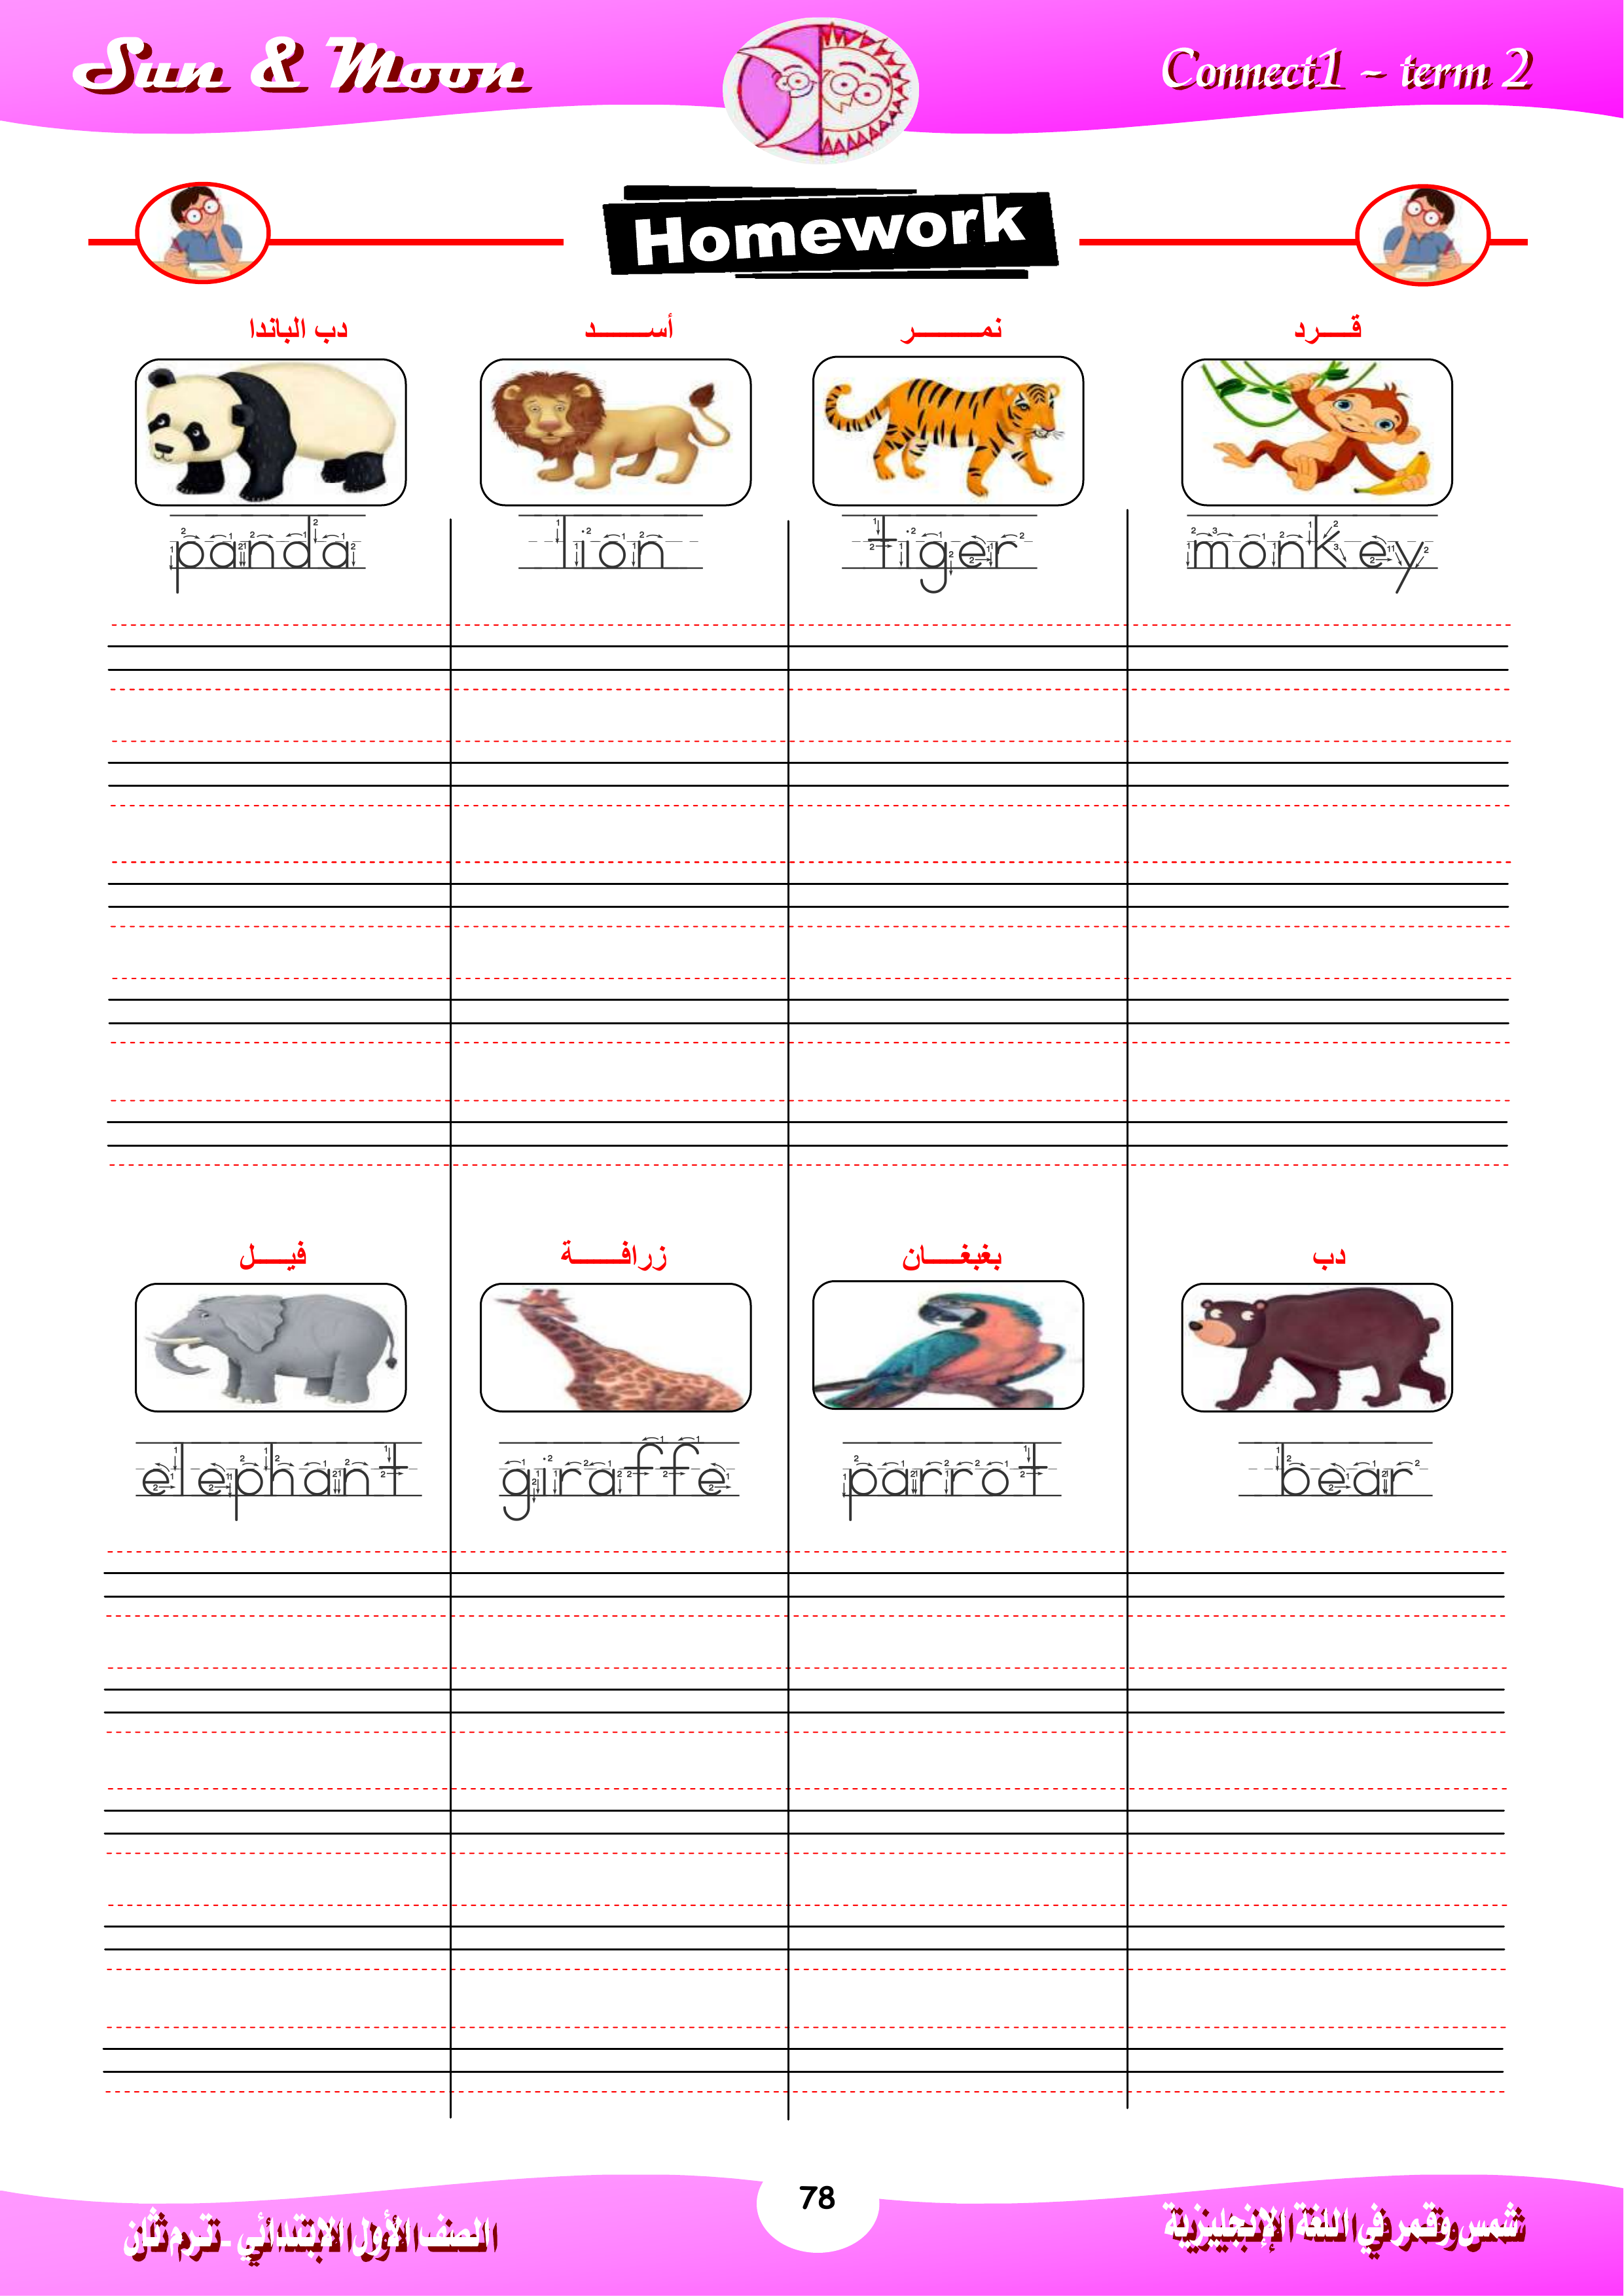 Sun & Moon
Connect1 – term 2
Homework
دب الباندا أســـــد نمـــــــر قـــرد
panda lion tiger monkey
فيـــل زرافـــــة بغبغـــان دب
elephant giraffe parrot bear
78
الصف الأول الابتدائي - ترم ثان
شمس وقمر في اللغة الإنجليزية